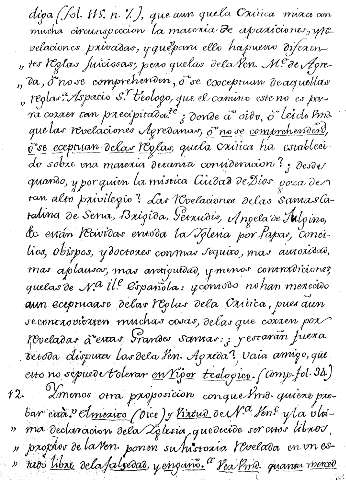 diga (fol. 115. n. 7.), que aun que la Critica mire con
mucha circunspeccion la materia de apariciones, y re-
velaciones privadas, y que para ello ha puesto diferen-
tes reglas juiciosas, pero que las de la Ven. Me. de Agre-
da, ó no se comprehenden, ó se exceptuan de aquellas
reglas. Aspacio Sr. Teologo, que el camino este no es pa-
ra correr tan precipitado; donde á oido, ó leido Vmd.
que las revelaciones Agredanas, ó no se comprehenden,
ó se exceptuan de las reglas, que la Critica ha estableci-
do sobre una materia de tanta consideracion? ¿desde
quando, y por quien la mistica Ciudad de Dios goza de
tan alto privilegio? Las revelaciones de las Santas Ca-
talina de Sena, Brigida, Gertrudis, Angela de Fulgino,
&c. están recividas en toda la Iglesia por Papas, Conci-
lios, obispos, y doctores con mas sequito, mas autoridad,
mas aplausos, mas antiguedad, y menos contradiciones,
que las de Nra. Ile. Española: y con todo no han merecido
aun exceptuarse de las reglas de la Critica, pues aun
se controvierten muchas cosas, de las que corren por
reveladas á estas Grandes Santas; ¿y estarán fuera
de toda disputa las de la Ven. Agreda? Vaia amigo, que
esto no se puede tolerar en rigor teologico. (Comp. fol. 34.)
12. Ymenos otra proposicion con que Vmd. quiere pro-
bar esto. El merito (dice) y Virtud de Nra. Vene. y la ól-
ma declaracion de la Iglesia, que decide ser estos libros
propios de la Ven. ponen su historia revelada en un es-
tado libre de la falsedad, y engaño. Vea Vmd. quanta merced